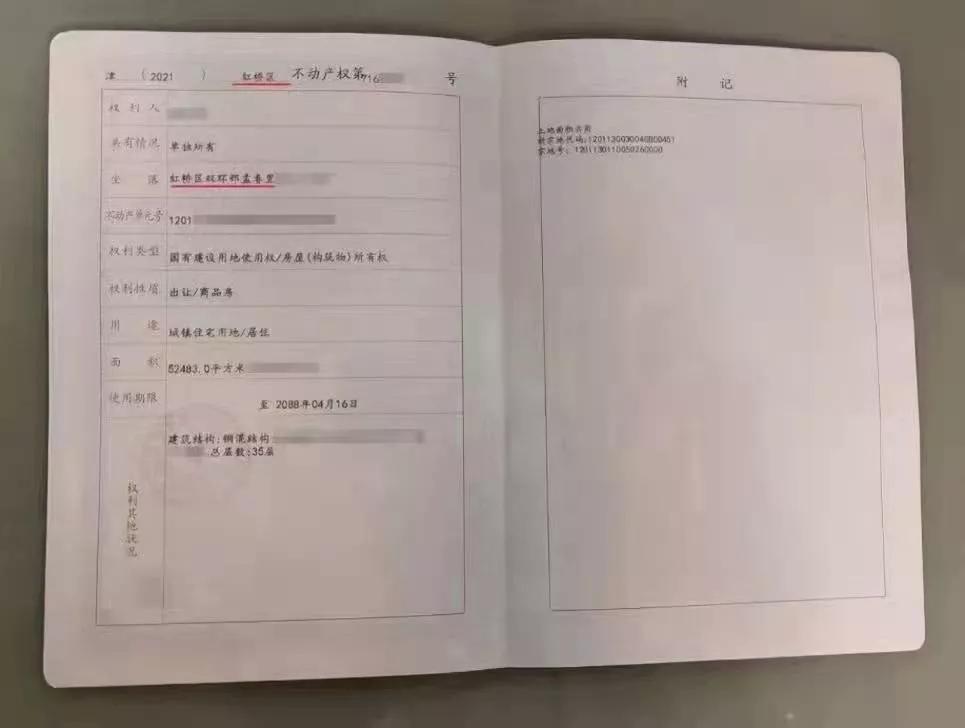 津 （2021 ） 红桥区 不动产权第 16 号
权利人
共有情况 单独所有
坐落 红桥区双环邨孟春里
不动产单元号 1201
权利类型 国有建设用地使用权/房屋(构筑物)所有权
权利性质 出让/商品房
用途 城镇住宅用地/居住
面积 52483.0平方米
使用期限 至 2088年04月16日
权利其他状况
建筑结构:钢混结构
总层数:35层
附 记
土地面积共用
新宗地代码:120113003004GB00451
宗地号: 1201130110050260000